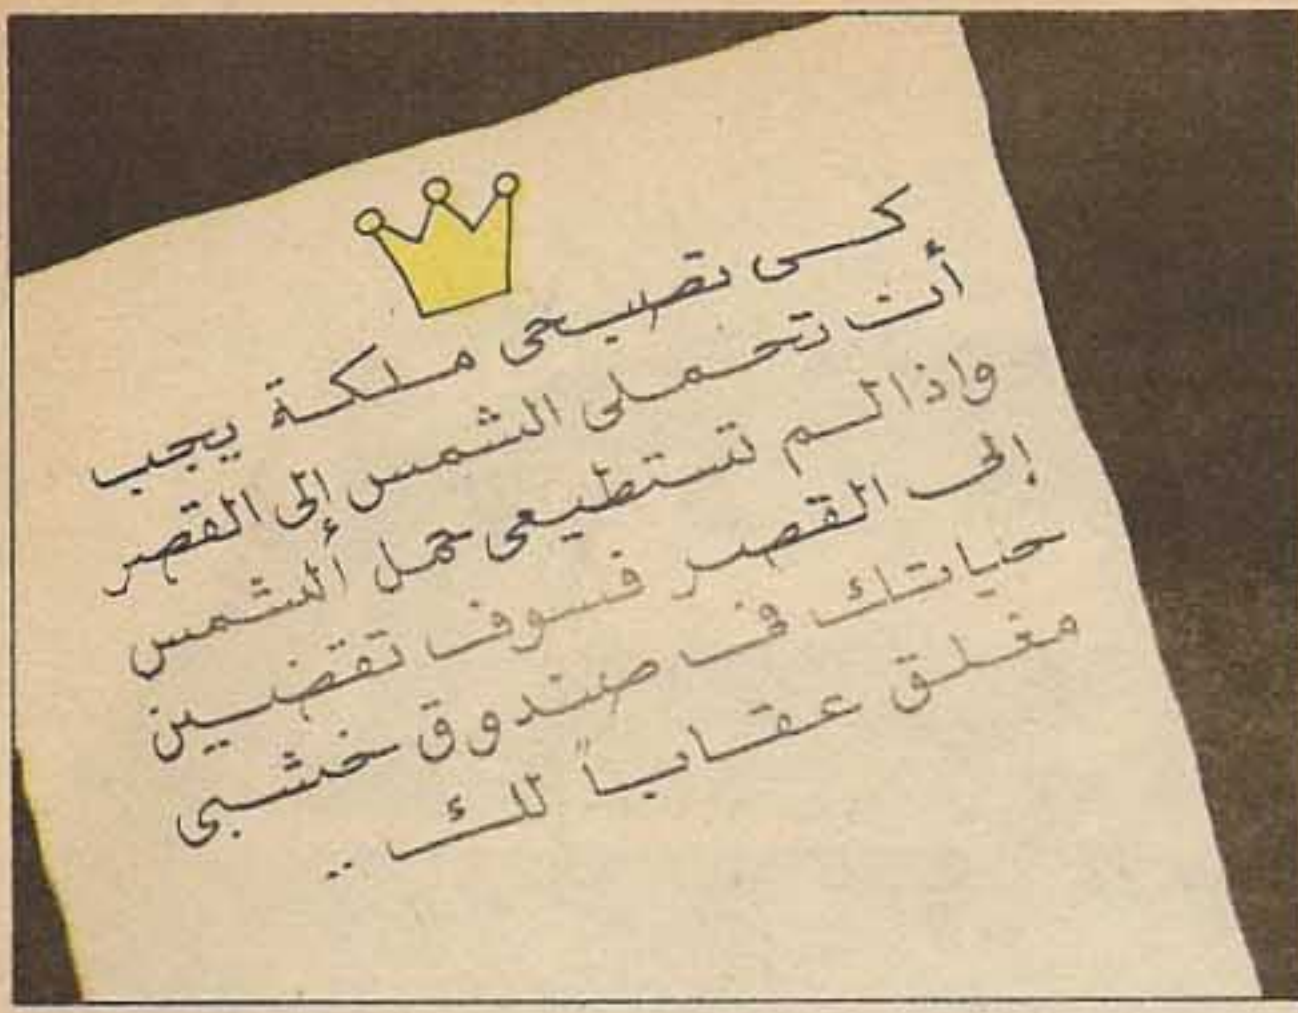 كى تصبحى ملكة يجب
أن تحملى الشمس إلى القصر
واذا لم تستطيعى حمل الشمس
إلى القصر فسوف تقضين
حياتك فى صندوق خشبى
مغلق عقاباً لك ..